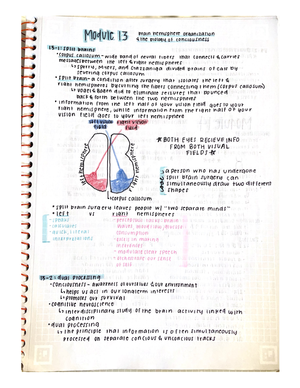 Module 13 Brain hemisphere organization
& the biology of consciousness
13-1: split brains
*corpus callosum - wide band of neural fibers that connects & carries
messages between the left & right hemispheres
↳ Sperry, Myers, and Gazzaniga divided brains of cats by
severing corpus callosum
*split brain - a condition after surgery that isolates the left &
right hemispheres by cutting the fibers connecting them (corpus callosum)
back & form between the two hemispheres
*information from the left half of your vision field goes to your
right hemisphere, while information from the right half of your
vision field goes to your left hemisphere
left visual field
right visual field
*BOTH EYES RECIEVE INFO
FROM BOTH VISUAL
FIELDS*
a person who has undergone
split brain surgery can
simultaneously draw two different
shapes
corpus callosum
*split brain surgery leaves people w/ "two separate minds"
*left vs right hemispheres
13-2: dual processing
*consciousness - awareness of ourselves & our environment
↳ helps us act in our longterm interests
↳ promotes our survival
*cognitive neuroscience
↳ interdisciplinary study of the brain activity linked with
cognition
*dual processing
↳ the principle that information is often simultaneously
processed on separate concious & unconcious tracks